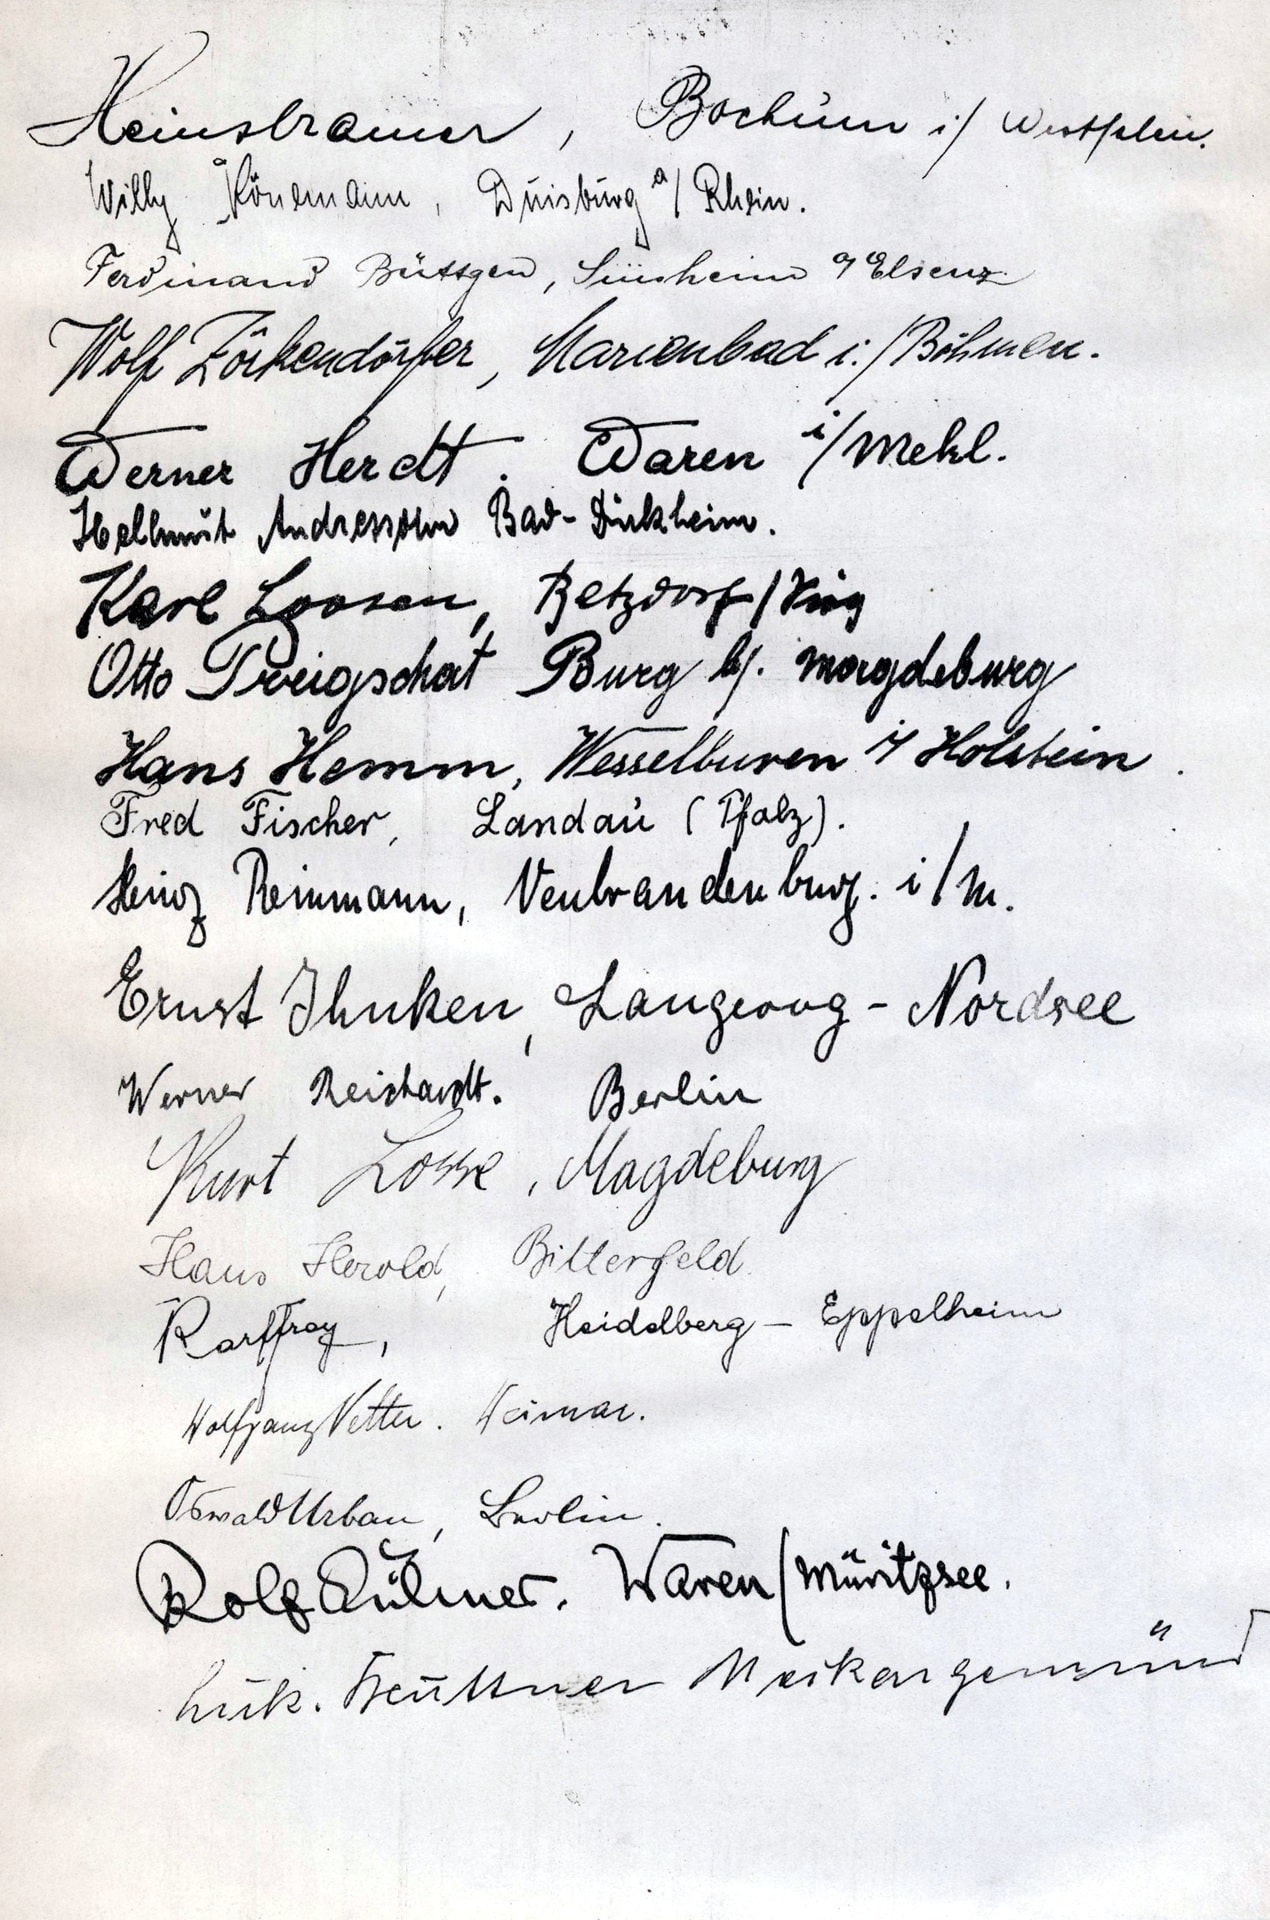 Heinz Kramer, Bochum i/ Westfalen.
Willy Könemann, Duisburg a/ Rhein.
Ferdinand Büttgen, Sinsheim a/ Elsenz
Wolf Zörkendörfer, Marienbad i./Böhmen.
Werner Herdt. Waren i/Mekl.
Hellmut Andressohn Bad-Dürkheim.
Karl Loosen, Betzdorf/Sieg
Otto Preigschat Burg b/. Magdeburg
Hans Hemm, Wesselburen i/ Holstein.
Fred Fischer, Landau (Pfalz).
Heinz Reinmann, Neubrandenburg. i/M.
Ernst Ihnken, Langeoog - Nordsee
Werner Reichardt. Berlin
Kurt Losse, Magdeburg
Hans Herold, Bitterfeld
Heidelberg - Eppelheim
Wolfgang Vetter. Weimar.
Oswald Urban, Berlin.
Rolf Waren/Müritzsee.
Neckargemünd